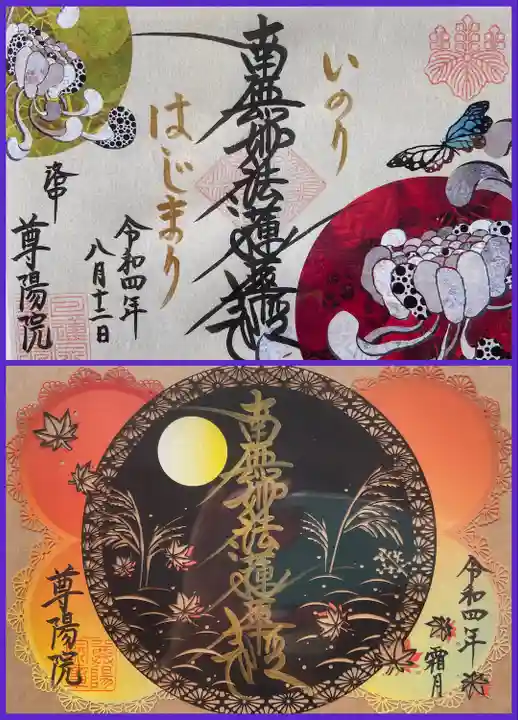 いのり
はじまり
南無妙法蓮華経
令和四年
八月十二日
洛中
尊陽院
南無妙法蓮華経
令和四年 秋
霜月
尊陽院